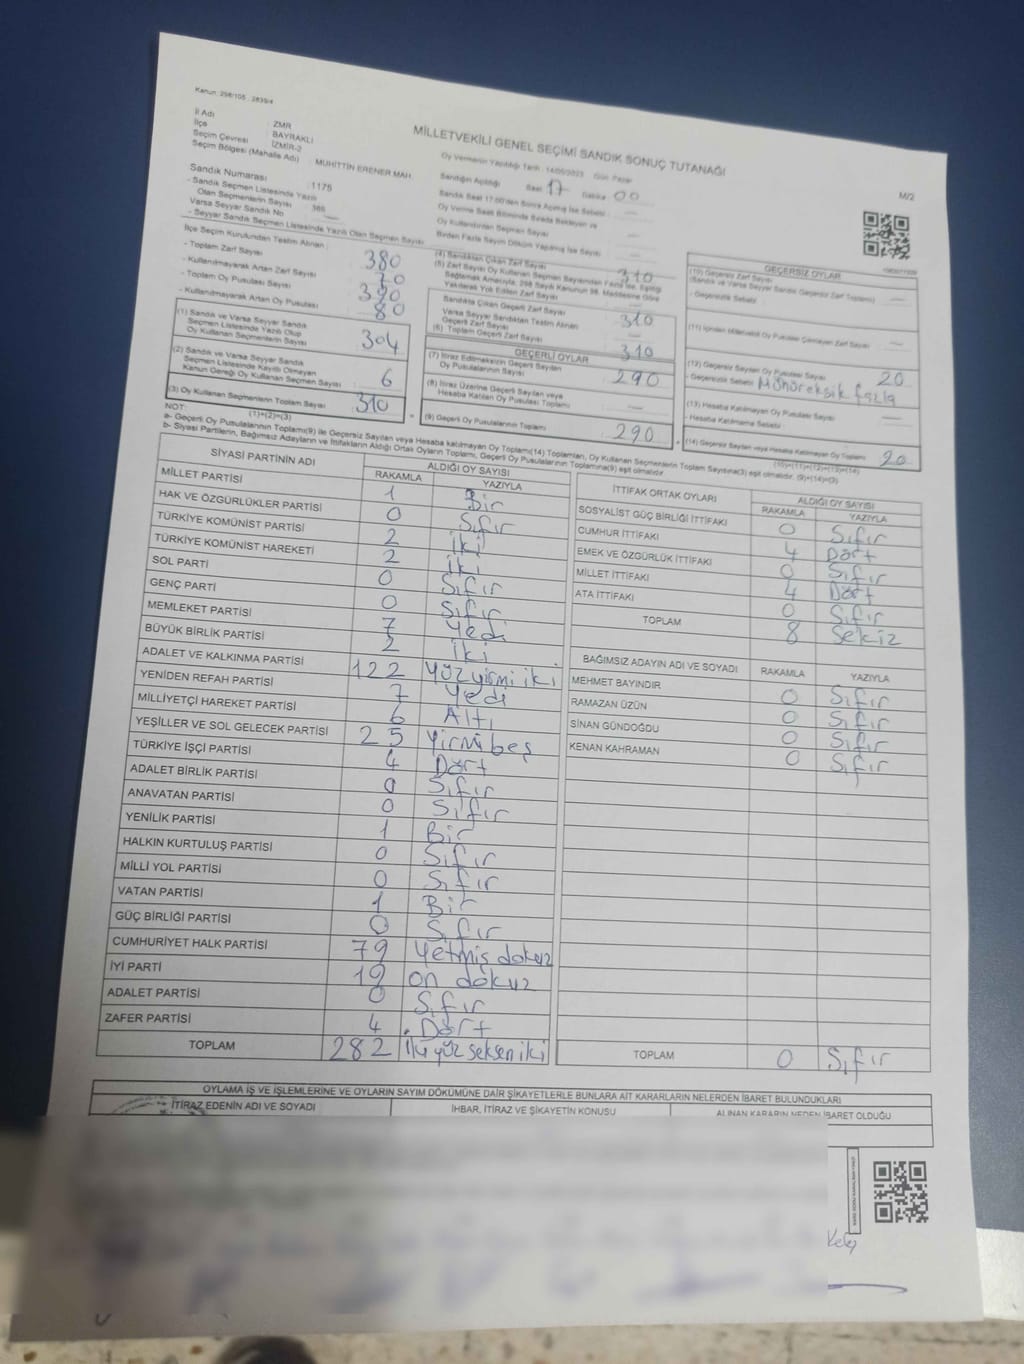 Kanun: 298/105 , 2839/4
İl Adı : ZMR
İlçe : BAYRAKLI
Seçim Çevresi : İZMİR-2
Seçim Bölgesi (Mahalle Adı) : MUHİTTİN ERENER MAH
MİLLETVEKİLİ GENEL SEÇİMİ SANDIK SONUÇ TUTANAĞI
M/2
Oy Vermenin Yapıldığı Tarih : 14/05/2023 Gün: Pazar
Sandığın Açıldığı Saat 17 Dakika 00
Sandık Saat 17:00'den Sonra Açılmış İse Sebebi : —
Oy Verme Saati Bitiminde Sırada Bekleyen ve
Oy Kullandırılan Seçmen Sayısı : —
Birden Fazla Sayım Döküm Yapılmış İse Sayısı : —
Sandık Numarası : 1175
- Sandık Seçmen Listesinde Yazılı
Olan Seçmenlerin Sayısı :
Varsa Seyyar Sandık No : —
- Seyyar Sandık Seçmen Listesinde Yazılı Olan Seçmen Sayısı
İlçe Seçim Kurulundan Teslim Alınan :
- Toplam Zarf Sayısı : 380
- Kullanılmayarak Artan Zarf Sayısı : 70
- Toplam Oy Pusulası Sayısı : 390
- Kullanılmayarak Artan Oy Pusulası : 80
(1) Sandık ve Varsa Seyyar Sandık
Seçmen Listesinde Yazılı Olup
Oy Kullanan Seçmenlerin Sayısı : 304
(2) Sandık ve Varsa Seyyar Sandık
Seçmen Listesinde Kayıtlı Olmayan
Kanun Gereği Oy Kullanan Seçmen Sayısı : 6
(3) Oy Kullanan Seçmenlerin Toplam Sayısı : 310
(1)+(2)=(3)
(4) Sandıktan Çıkan Zarf Sayısı : 310
(5) Zarf Sayısı Oy Kullanan Seçmen Sayısından Fazla İse, Eşitliği
Sağlamak Amacıyla, 298 Sayılı Kanunun 98. Maddesine Göre
Yakılarak Yok Edilen Zarf Sayısı : —
Sandıkta Çıkan Geçerli Zarf Sayısı : 310
Varsa Seyyar Sandıktan Teslim Alınan
Geçerli Zarf Sayısı : —
(6) Toplam Geçerli Zarf Sayısı : 310
GEÇERLİ OYLAR
(7) İtiraz Edilmeksizin Geçerli Sayılan
Oy Pusulalarının Sayısı : 290
(8) İtiraz Üzerine Geçerli Sayılan veya
Hesaba Katılan Oy Pusulası Toplamı : —
(9) Geçerli Oy Pusulalarının Toplamı : 290
GEÇERSİZ OYLAR
(10) Geçersiz Zarf Sayısı
(Sandık ve Varsa Seyyar Sandık Geçersiz Zarf Toplamı) : —
- Geçersizlik Sebebi :
(11) İçinden Milletvekili Oy Pusulası Çıkmayan Zarf Sayısı : —
(12) Geçersiz Sayılan Oy Pusulası Sayısı : 20
- Geçersizlik Sebebi : Mühüreksik fazla
(13) Hesaba Katılmayan Oy Pusulası Sayısı : —
- Hesaba Katılmama Sebebi :
(14) Geçersiz Sayılan veya Hesaba Katılmayan Oy Toplamı : 20
(10)+(11)+(12)+(13)=(14)
NOT:
a- Geçerli Oy Pusulalarının Toplamı(9) ile Geçersiz Sayılan veya Hesaba katılmayan Oy Toplamı(14) Toplamları, Oy Kullanan Seçmenlerin Toplam Sayısına(3) eşit olmalıdır. (9)+(14)=(3)
b- Siyasi Partilerin, Bağımsız Adayların ve İttifakların Aldığı Ortak Oyların Toplamı, Geçerli Oy Pusulalarının Toplamına(9) eşit olmalıdır.
SİYASİ PARTİNİN ADI ALDIĞI OY SAYISI
RAKAMLA YAZIYLA
MİLLET PARTİSİ 1 Bir
HAK VE ÖZGÜRLÜKLER PARTİSİ 0 Sıfır
TÜRKİYE KOMÜNİST PARTİSİ 2 iki
TÜRKİYE KOMÜNİST HAREKETİ 2 iki
SOL PARTİ 0 Sıfır
GENÇ PARTİ 0 Sıfır
MEMLEKET PARTİSİ 7 Yedi
BÜYÜK BİRLİK PARTİSİ 2 iki
ADALET VE KALKINMA PARTİSİ 122 yüz yirmi iki
YENİDEN REFAH PARTİSİ 7 Yedi
MİLLİYETÇİ HAREKET PARTİSİ 6 Altı
YEŞİLLER VE SOL GELECEK PARTİSİ 25 Yirmi beş
TÜRKİYE İŞÇİ PARTİSİ 4 Dört
ADALET BİRLİK PARTİSİ 0 Sıfır
ANAVATAN PARTİSİ 0 Sıfır
YENİLİK PARTİSİ 1 Bir
HALKIN KURTULUŞ PARTİSİ 0 Sıfır
MİLLİ YOL PARTİSİ 0 Sıfır
VATAN PARTİSİ 1 Bir
GÜÇ BİRLİĞİ PARTİSİ 0 Sıfır
CUMHURİYET HALK PARTİSİ 79 Yetmiş dokuz
İYİ PARTİ 19 on dokuz
ADALET PARTİSİ 0 Sıfır
ZAFER PARTİSİ 4 Dört
TOPLAM 282 İki yüz seksen iki
İTTİFAK ORTAK OYLARI ALDIĞI OY SAYISI
RAKAMLA YAZIYLA
SOSYALİST GÜÇ BİRLİĞİ İTTİFAKI 0 Sıfır
CUMHUR İTTİFAKI 4 Dört
EMEK VE ÖZGÜRLÜK İTTİFAKI 0 Sıfır
MİLLET İTTİFAKI 4 Dört
ATA İTTİFAKI 0 Sıfır
TOPLAM 8 Sekiz
BAĞIMSIZ ADAYIN ADI VE SOYADI RAKAMLA YAZIYLA
MEHMET BAYINDIR 0 Sıfır
RAMAZAN ÜZÜN 0 Sıfır
SİNAN GÜNDOĞDU 0 Sıfır
KENAN KAHRAMAN 0 Sıfır
TOPLAM 0 Sıfır
OYLAMA İŞ VE İŞLEMLERİNE VE OYLARIN SAYIM DÖKÜMÜNE DAİR ŞİKAYETLERLE BUNLARA AİT KARARLARIN NELERDEN İBARET BULUNDUKLARI
İTİRAZ EDENİN ADI VE SOYADI İHBAR, İTİRAZ VE ŞİKAYETİN KONUSU ALINAN KARARIN NEDEN İBARET OLDUĞU